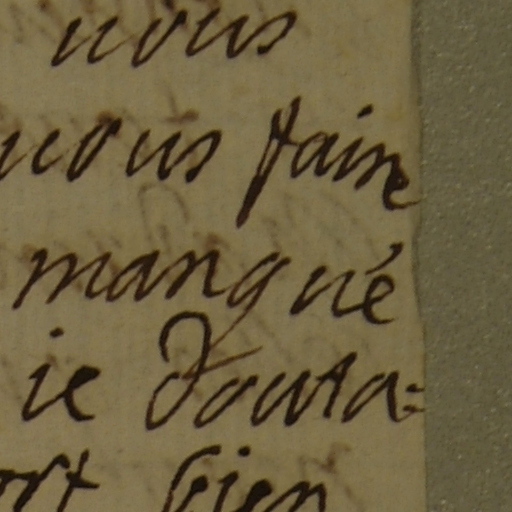 uous
uous faire
manqué
ie douta=
ort bien